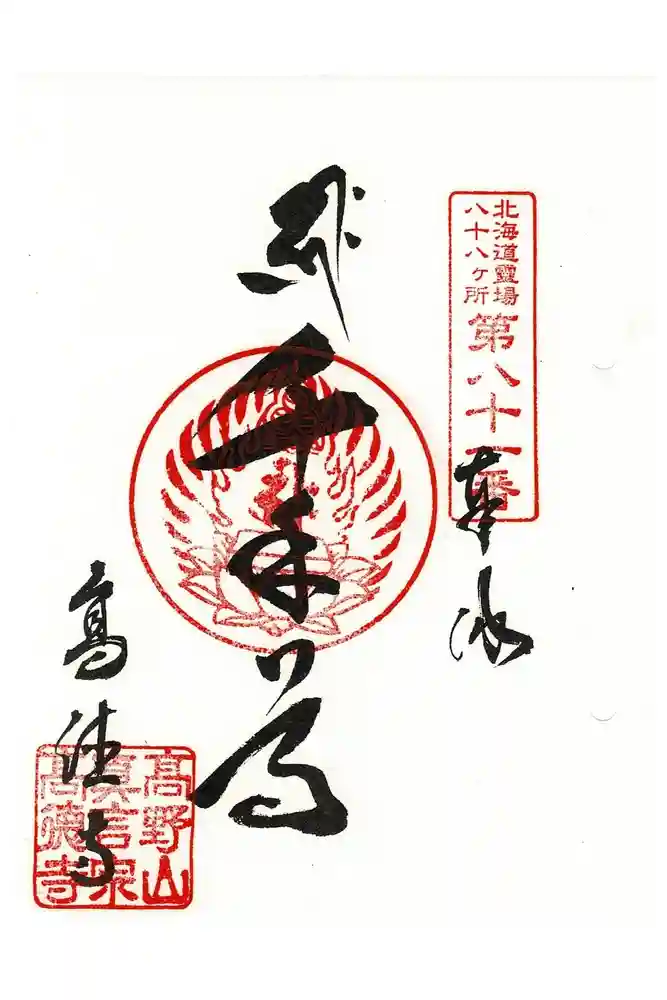 北海道靈場
八十八ヶ所
第八十 番
奉拝
千手尊
高徳寺
高野山
真言宗
高徳寺